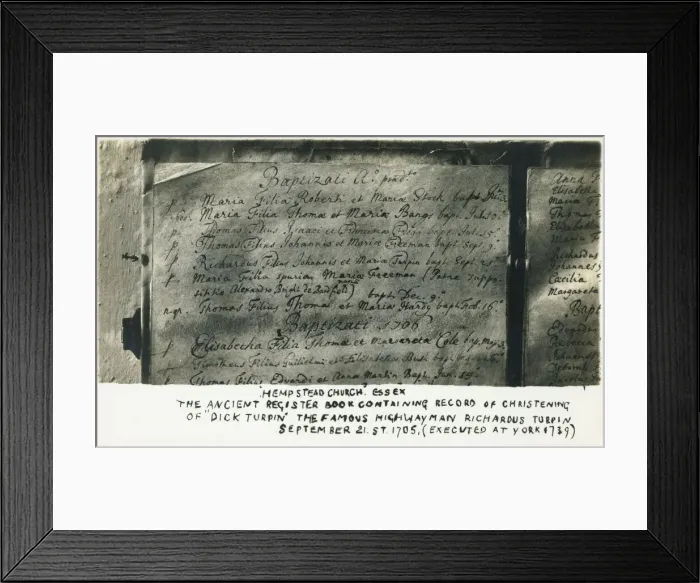 Baptizati Aº. prædtº
p. Maria Filia Roberti et Maria Stock bapt.
Maria Filia Thomæ et Maria Bangs bap. Jul. 10.
p. Thomas Filius Ignaci et Francisca bapt. Jul. 15.
p. Thomas Filius Johannis et Maria Freeman bapt Sept. 9.
p. Richardus Filius Johannis et Maria Turpin bapt Sept. 21
p. Maria Filia spuria Maria Freeman (Patre suppo-
sititio Alexandro )
bapt. Dec. 9.
Thomas Filius Thomæ et Maria Hardy bapt Feb. 16º
Baptizati 1706
p. Elisabetha Filia Thomæ et Margareta Cole bap. May
Filius Guilielmi et Elisabetha Bush bap.
Thomas Filius Edvardi et Anna Martin Bapt. Jun.
Anna
Elisabetha
Maria F
Thomas
Elizabetha
Maria F
Richardus
Johannes
Cæcilia
Margareta
Bapt
Edvardus
Rebecca
Johannes
Deborah
"HEMPSTEAD CHURCH". ESSEX
THE ANCIENT REGISTER BOOK CONTAINING RECORD OF CHRISTENING
OF "DICK TURPIN" THE FAMOUS HIGHWAYMAN RICHARDUS TURPIN
SEPTEMBER 21.ST. 1705, (EXECUTED AT YORK 1739)